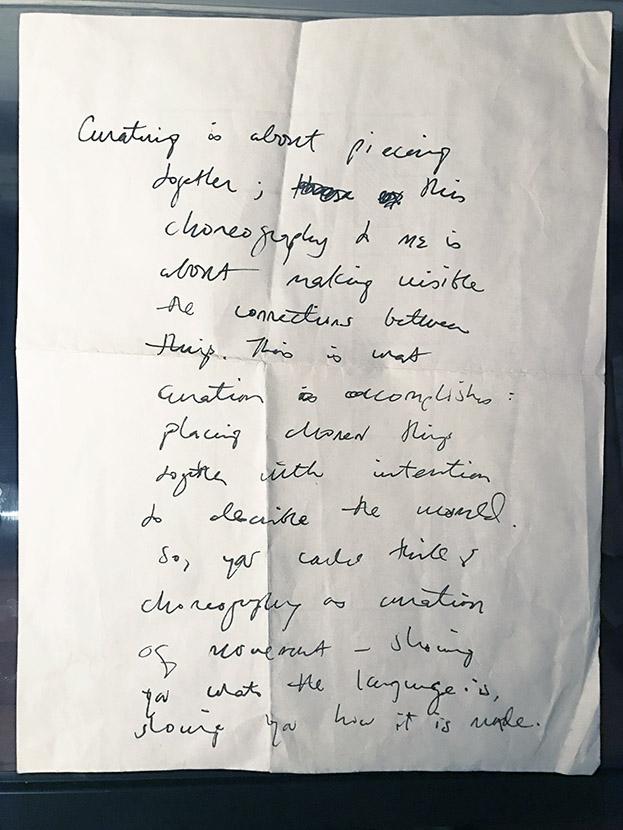 Curating is about piecing
together; this
choreography to me is
about making visible
the connections between
things. This is what
curation accomplishes:
placing chosen things
together with intention
to describe the world.
So, you could think of
choreography as curation
of movement – showing
you what the language is,
showing you how it is made.